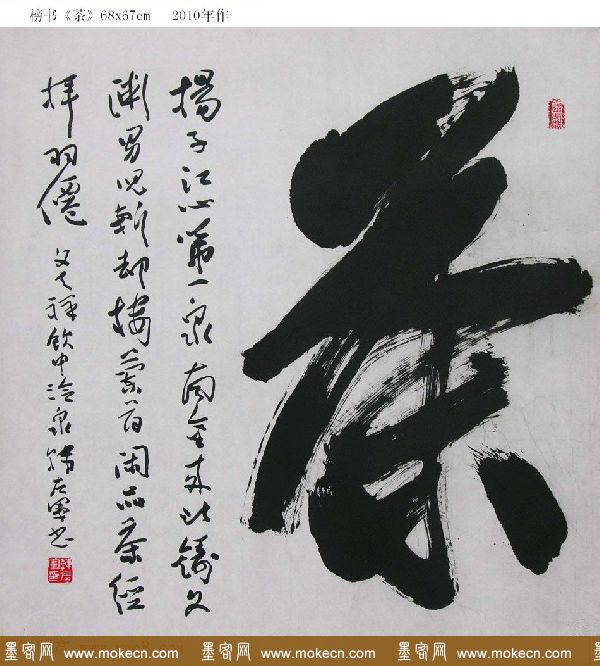 榜书《茶》68x67cm 2010年作
茶
揚子江心第一泉南金来此鑄文
渊男児斬却楼蘭首闲品茶經
拜羽僊
文天祥飲中泠泉
墨客网 www.mokecn.com 墨客网 www.mokecn.com 墨客网 www.mokecn.com